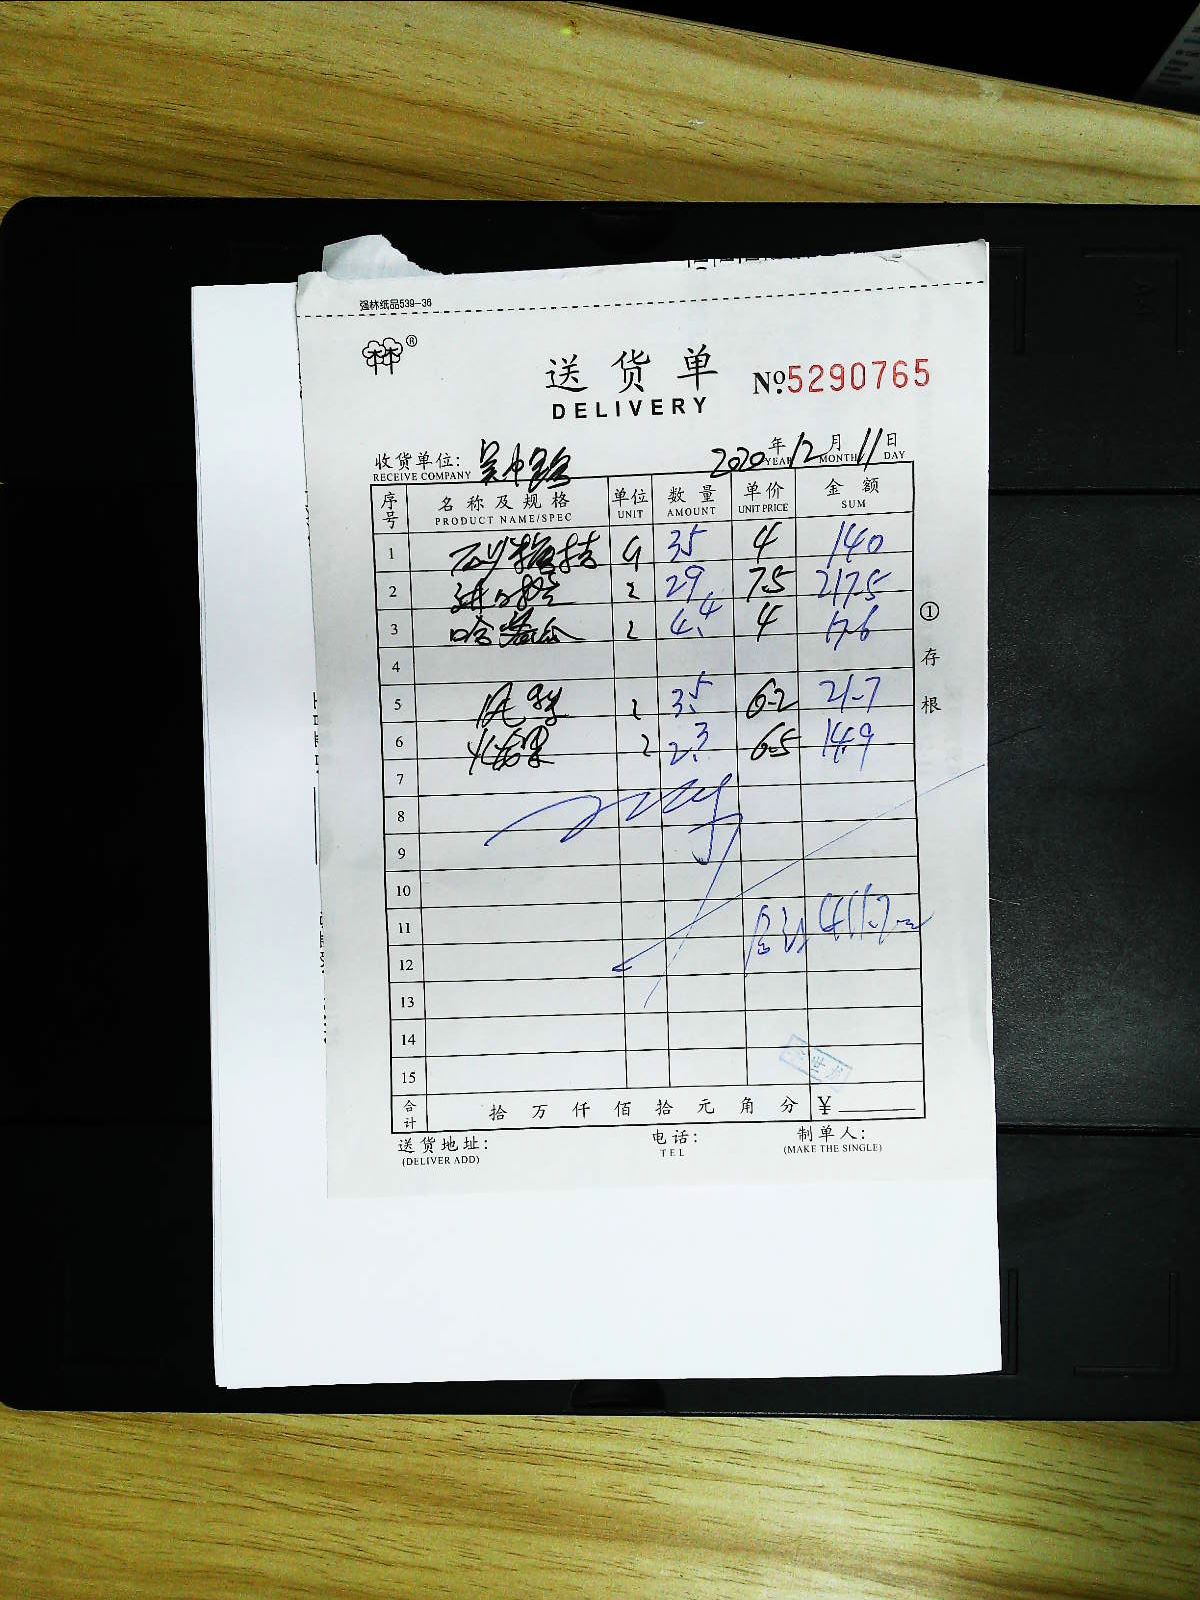 强林纸品539-36
林林®
送货单
DELIVERY
№5290765
收货单位: 吴中路
RECEIVE COMPANY
2020年12月11日
YEAR MONTH DAY
序号 名称及规格 单位 数量 单价 金额
PRODUCT NAME/SPEC UNIT AMOUNT UNIT PRICE SUM
1 砂糖桔 35 4 140
2 进口 29 7.5 217.5
3 哈密瓜 4.4 4 17.6
4
5 凤梨 3.5 6.2 21.7
6 火龙果 2.3 6.5 14.9
7
8
9
10
11 合计 411.7元
12
13
14
15
合计 拾万仟佰拾元角分 ¥
送货地址: 电话: 制单人:
(DELIVER ADD) TEL (MAKE THE SINGLE)
①存根